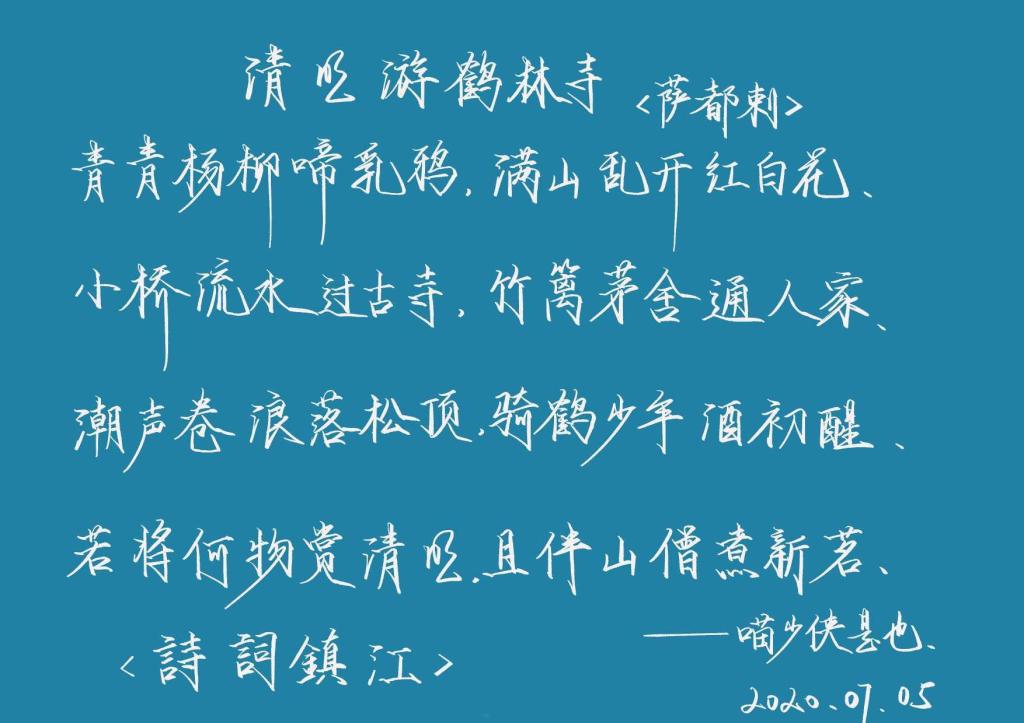 清明游鹤林寺 <萨都剌>
青青杨柳啼乳鸦,满山乱开红白花、
小桥流水过古寺,竹篱茅舍通人家、
潮声卷浪落松顶,骑鹤少年酒初醒、
若将何物赏清明,且伴山僧煮新茗、
——喵少侠是也、
<詩詞鎮江>
2020.07.05